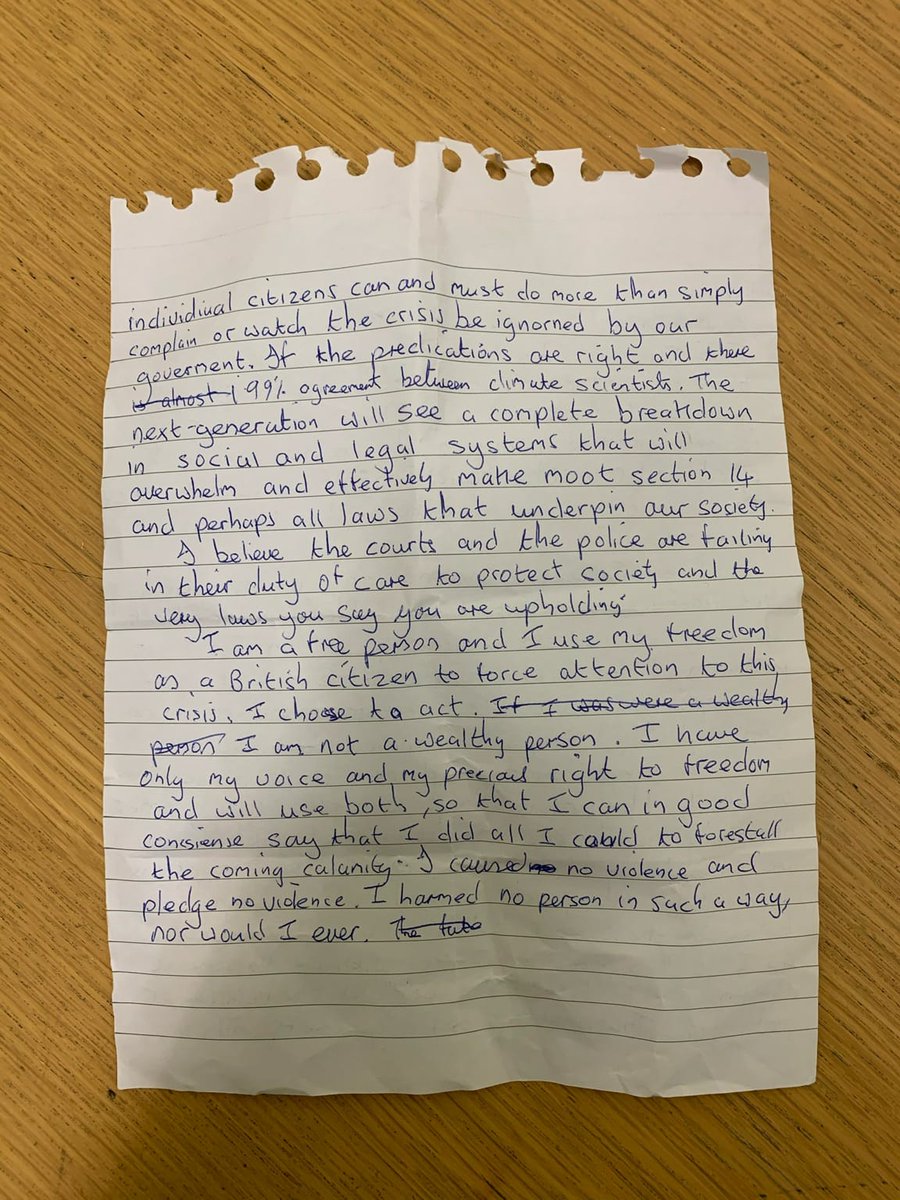 individiual citizens can and must do more than simply
complain or watch the crisis be ignorned by our
goverment. If the predications are right and there
is almost 99% agreement between climate scientists. The
next-generation will see a complete breakdown
in social and legal systems that will
overwhelm and effectively make moot section 14
and perhaps all laws that underpin our sosiety.
I believe the courts and the police are failing
in their duty of care to protect society and the
very laws you say you are upholding.
I am a free person and I use my freedom
as a British citizen to force attention to this
crisis. I choose to act. If I was were a wealthy
person I am not a wealthy person. I have
only my voice and my precious right to freedom
and will use both, so that I can in good
consiense say that I did all I could to forestall
the coming calanity. I caused no violence and
pledge no violence. I harmed no person in such a way,
nor would I ever. The